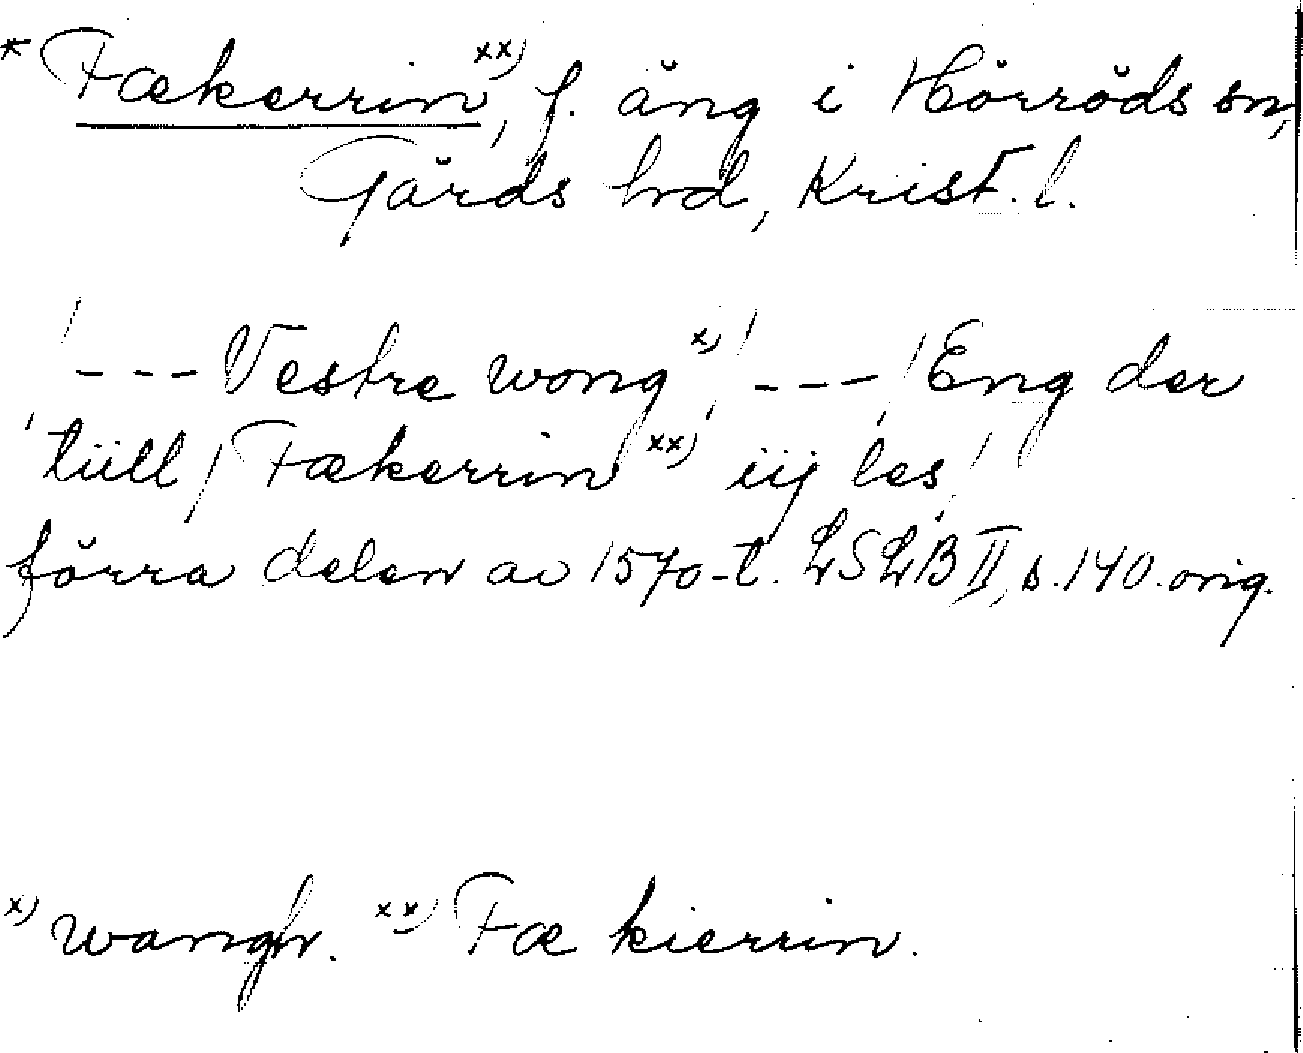 * Fækerrin xx), f. äng i Hörröds sn,
Gärds hrd, Krist. l.
'--- Vestre wong x)' --- 'Eng der
'tiill / Fækerrin xx) iij les'
förra delen av 1570-t. LSLB II, s. 140. orig.
x) wangh. xx) Fæ kierrin.